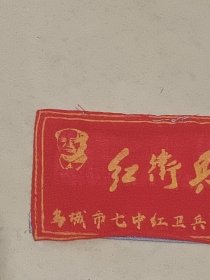 红衛兵
城市七中红卫兵